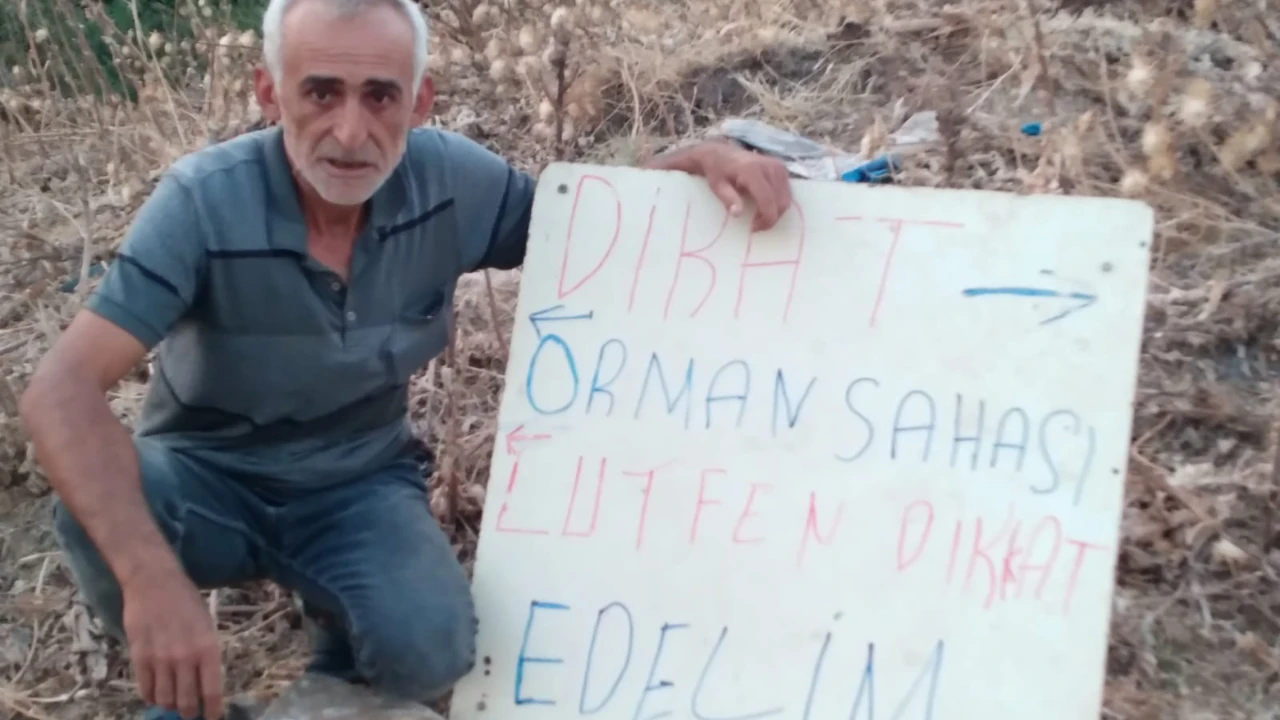 DİKAT →
← ORMAN SAHASI
← LUTFEN DIKKAT
EDELİM